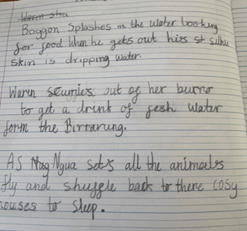 Baggon Splashes in the water looking
for food when he gets out his silky
skin is dripping water.
Warin scurries out of her burro
to get a drink of fresh water
form the Birrarung.
AS Ngua sets all the animales
fly and shuffle back to there cosy
houses to sleep.